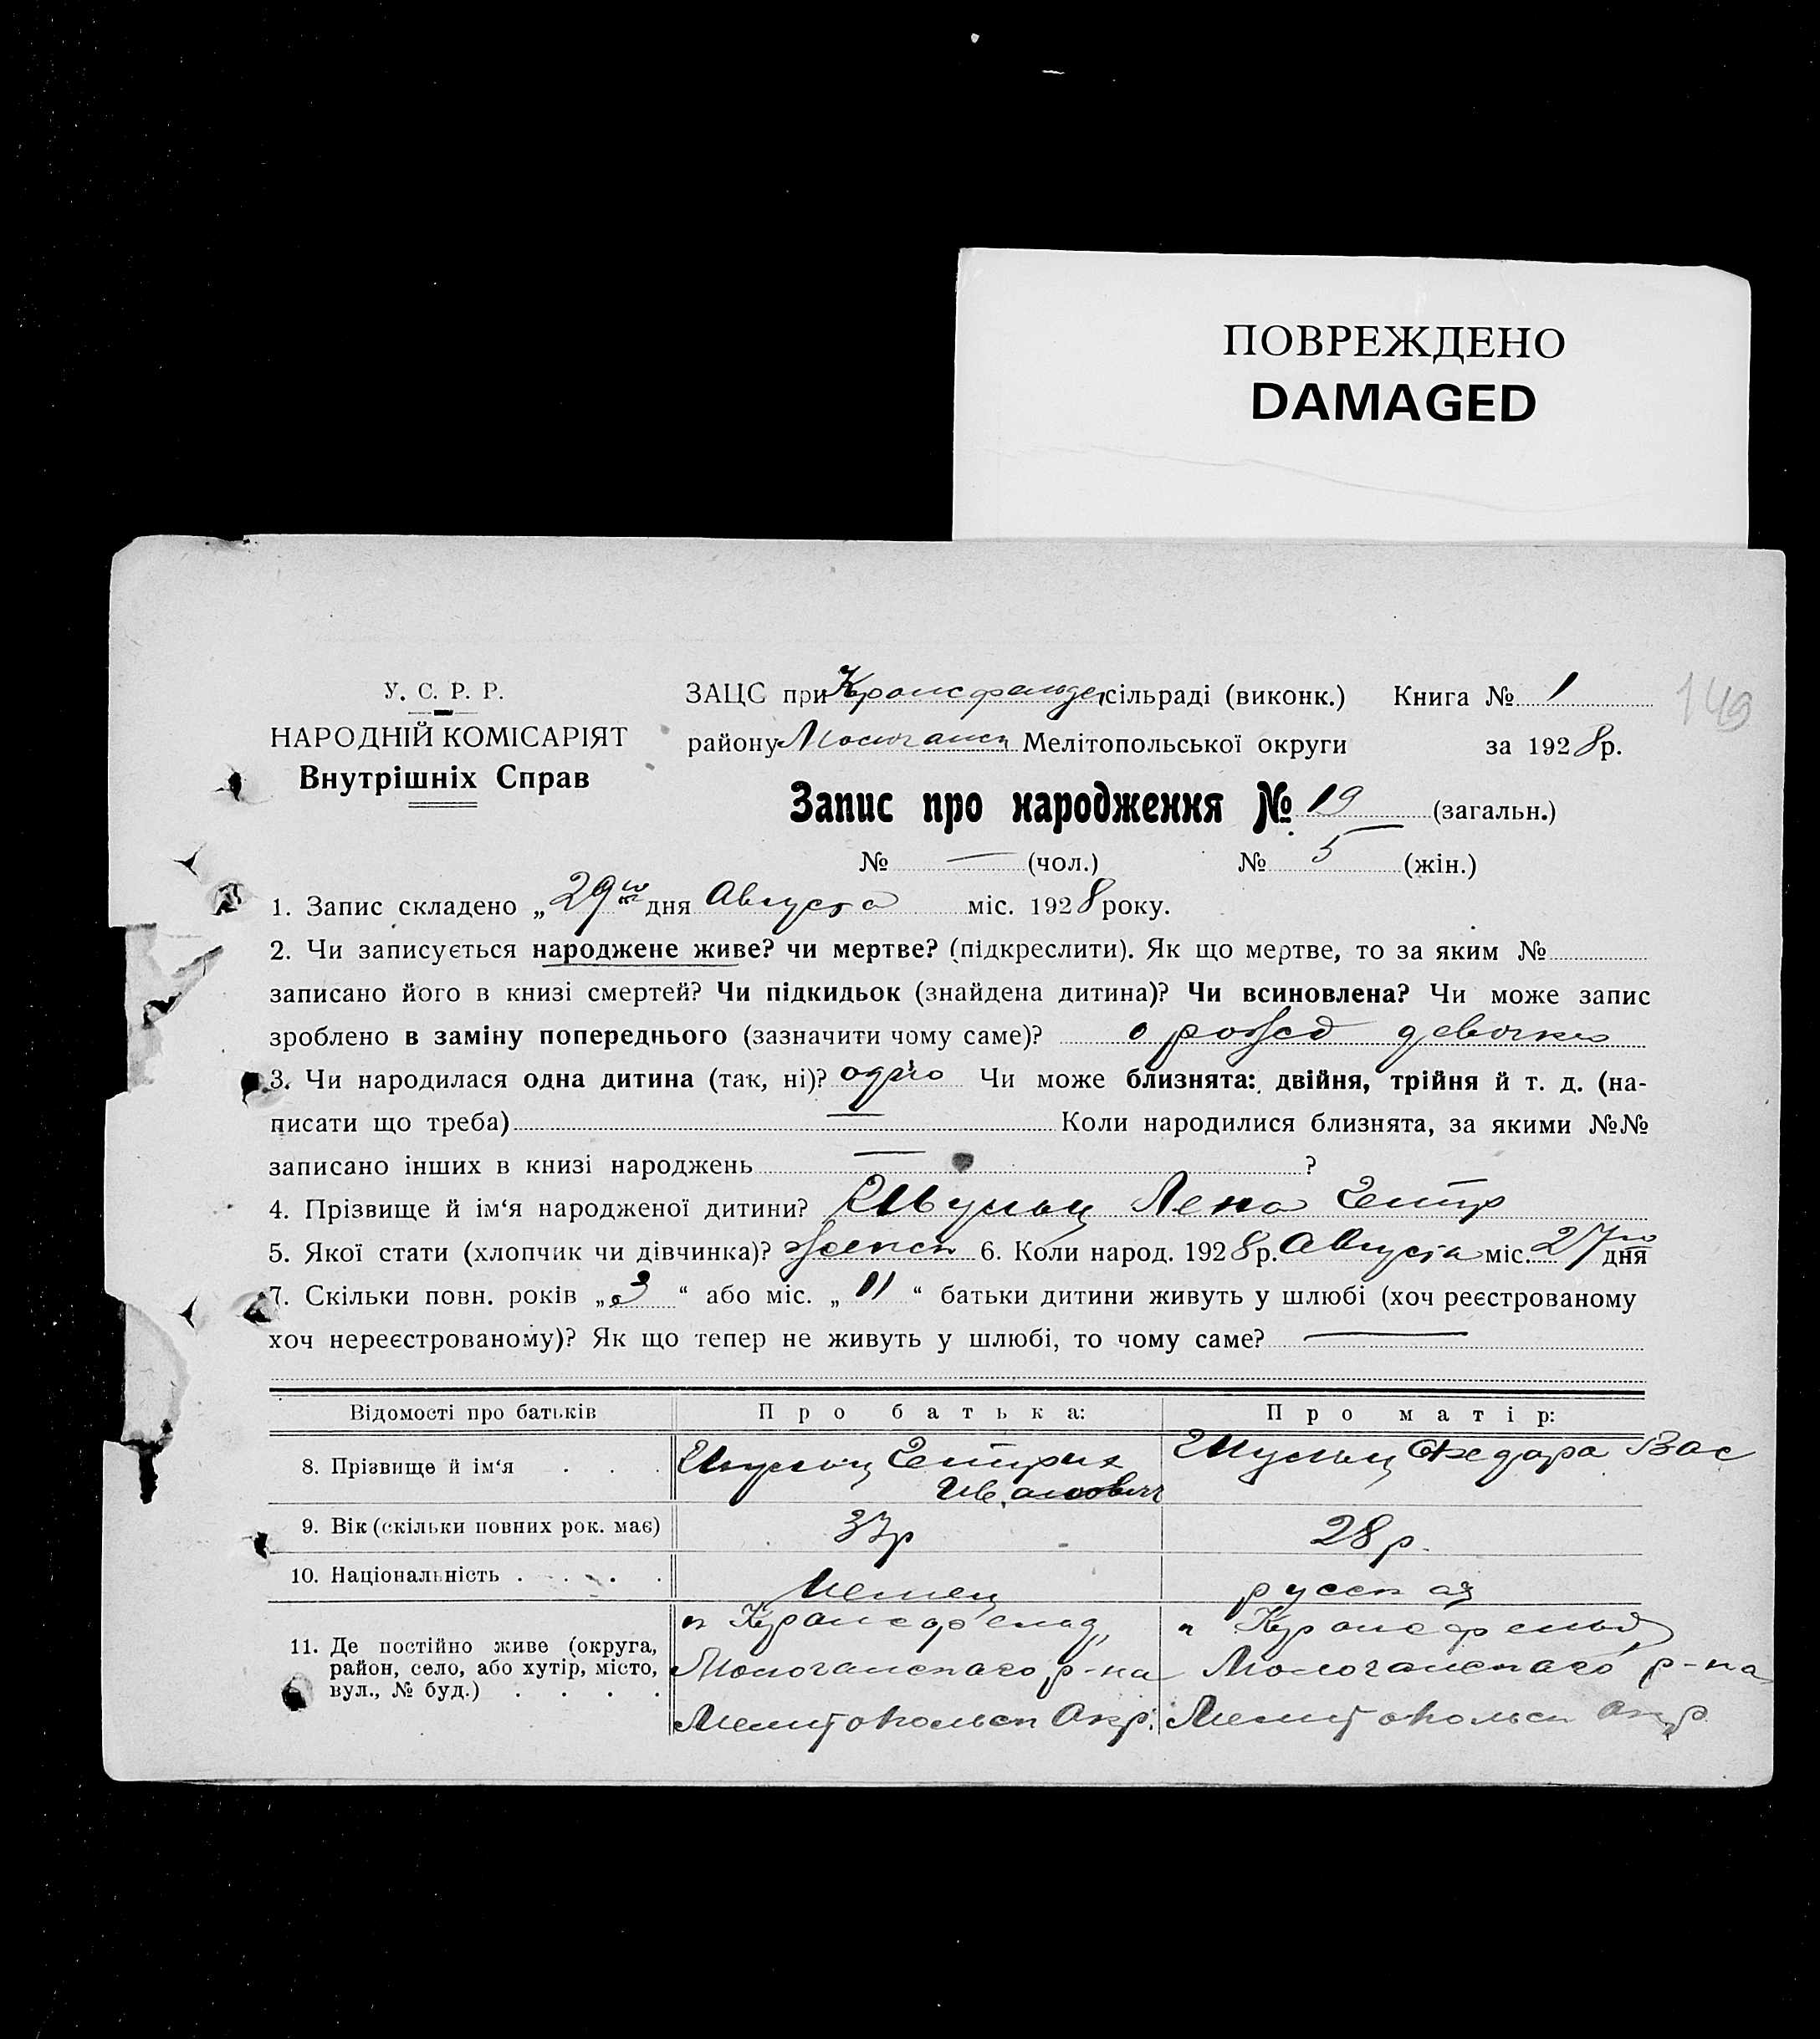 ПОВРЕЖДЕНО
DAMAGED
149
У. С. Р. Р.
НАРОДНІЙ КОМІСАРІЯТ
Внутрішніх Справ
ЗАЦС при сільраді (виконк.) Книга № 1
району Молочанск Мелітопольської округи за 1928 р.
Запис про народження № 19 (загальн.)
№ — (чол.) № 5 (жін.)
1. Запис складено „29го дня Августа міс. 1928 року.
2. Чи записується народжене живе? чи мертве? (підкреслити). Як що мертве, то за яким №
записано його в книзі смертей? Чи підкидьок (знайдена дитина)? Чи всиновлена? Чи може запис
зроблено в заміну попереднього (зазначити чому саме)? о рожд девочки
3. Чи народилася одна дитина (так, ні)? одно Чи може близнята: двійня, трійня й т. д. (на-
писати що треба) — Коли народилися близнята, за якими №№
записано інших в книзі народжень — ?
4. Прізвище й ім‘я народженої дитини? Лена
5. Якої стати (хлопчик чи дівчинка)? женск 6. Коли народ. 1928 р. Августа міс. 27го дня
7. Скільки повн. років „3“ або міс. „11“ батьки дитини живуть у шлюбі (хоч реєстрованому
хоч нереєстрованому)? Як що тепер не живуть у шлюбі, то чому саме? —
Відомості про батьків Про батька: Про матір:
8. Прізвище й ім‘я . . . Шульц Генрих Шульц Федора Вас
Иванович
9. Вік (скільки повних рок. має) 37р 28р.
10. Національність . . . . Немец русская
11. Де постійно живе (округа, к Крансфельд, к Крансфельд
район, село, або хутір, місто, Молочанскаго р-на Молочанскаго р-на
вул., № буд.) . . . . Мелитопольск Окр. Мелитопольск Окр